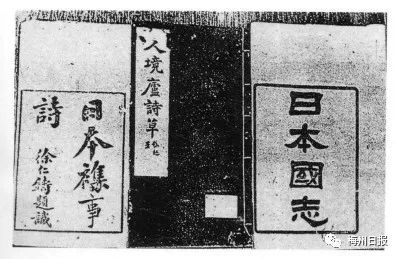 日本國志
人境廬詩草
日本襍事
詩
徐仁鑄題識
梅州日报